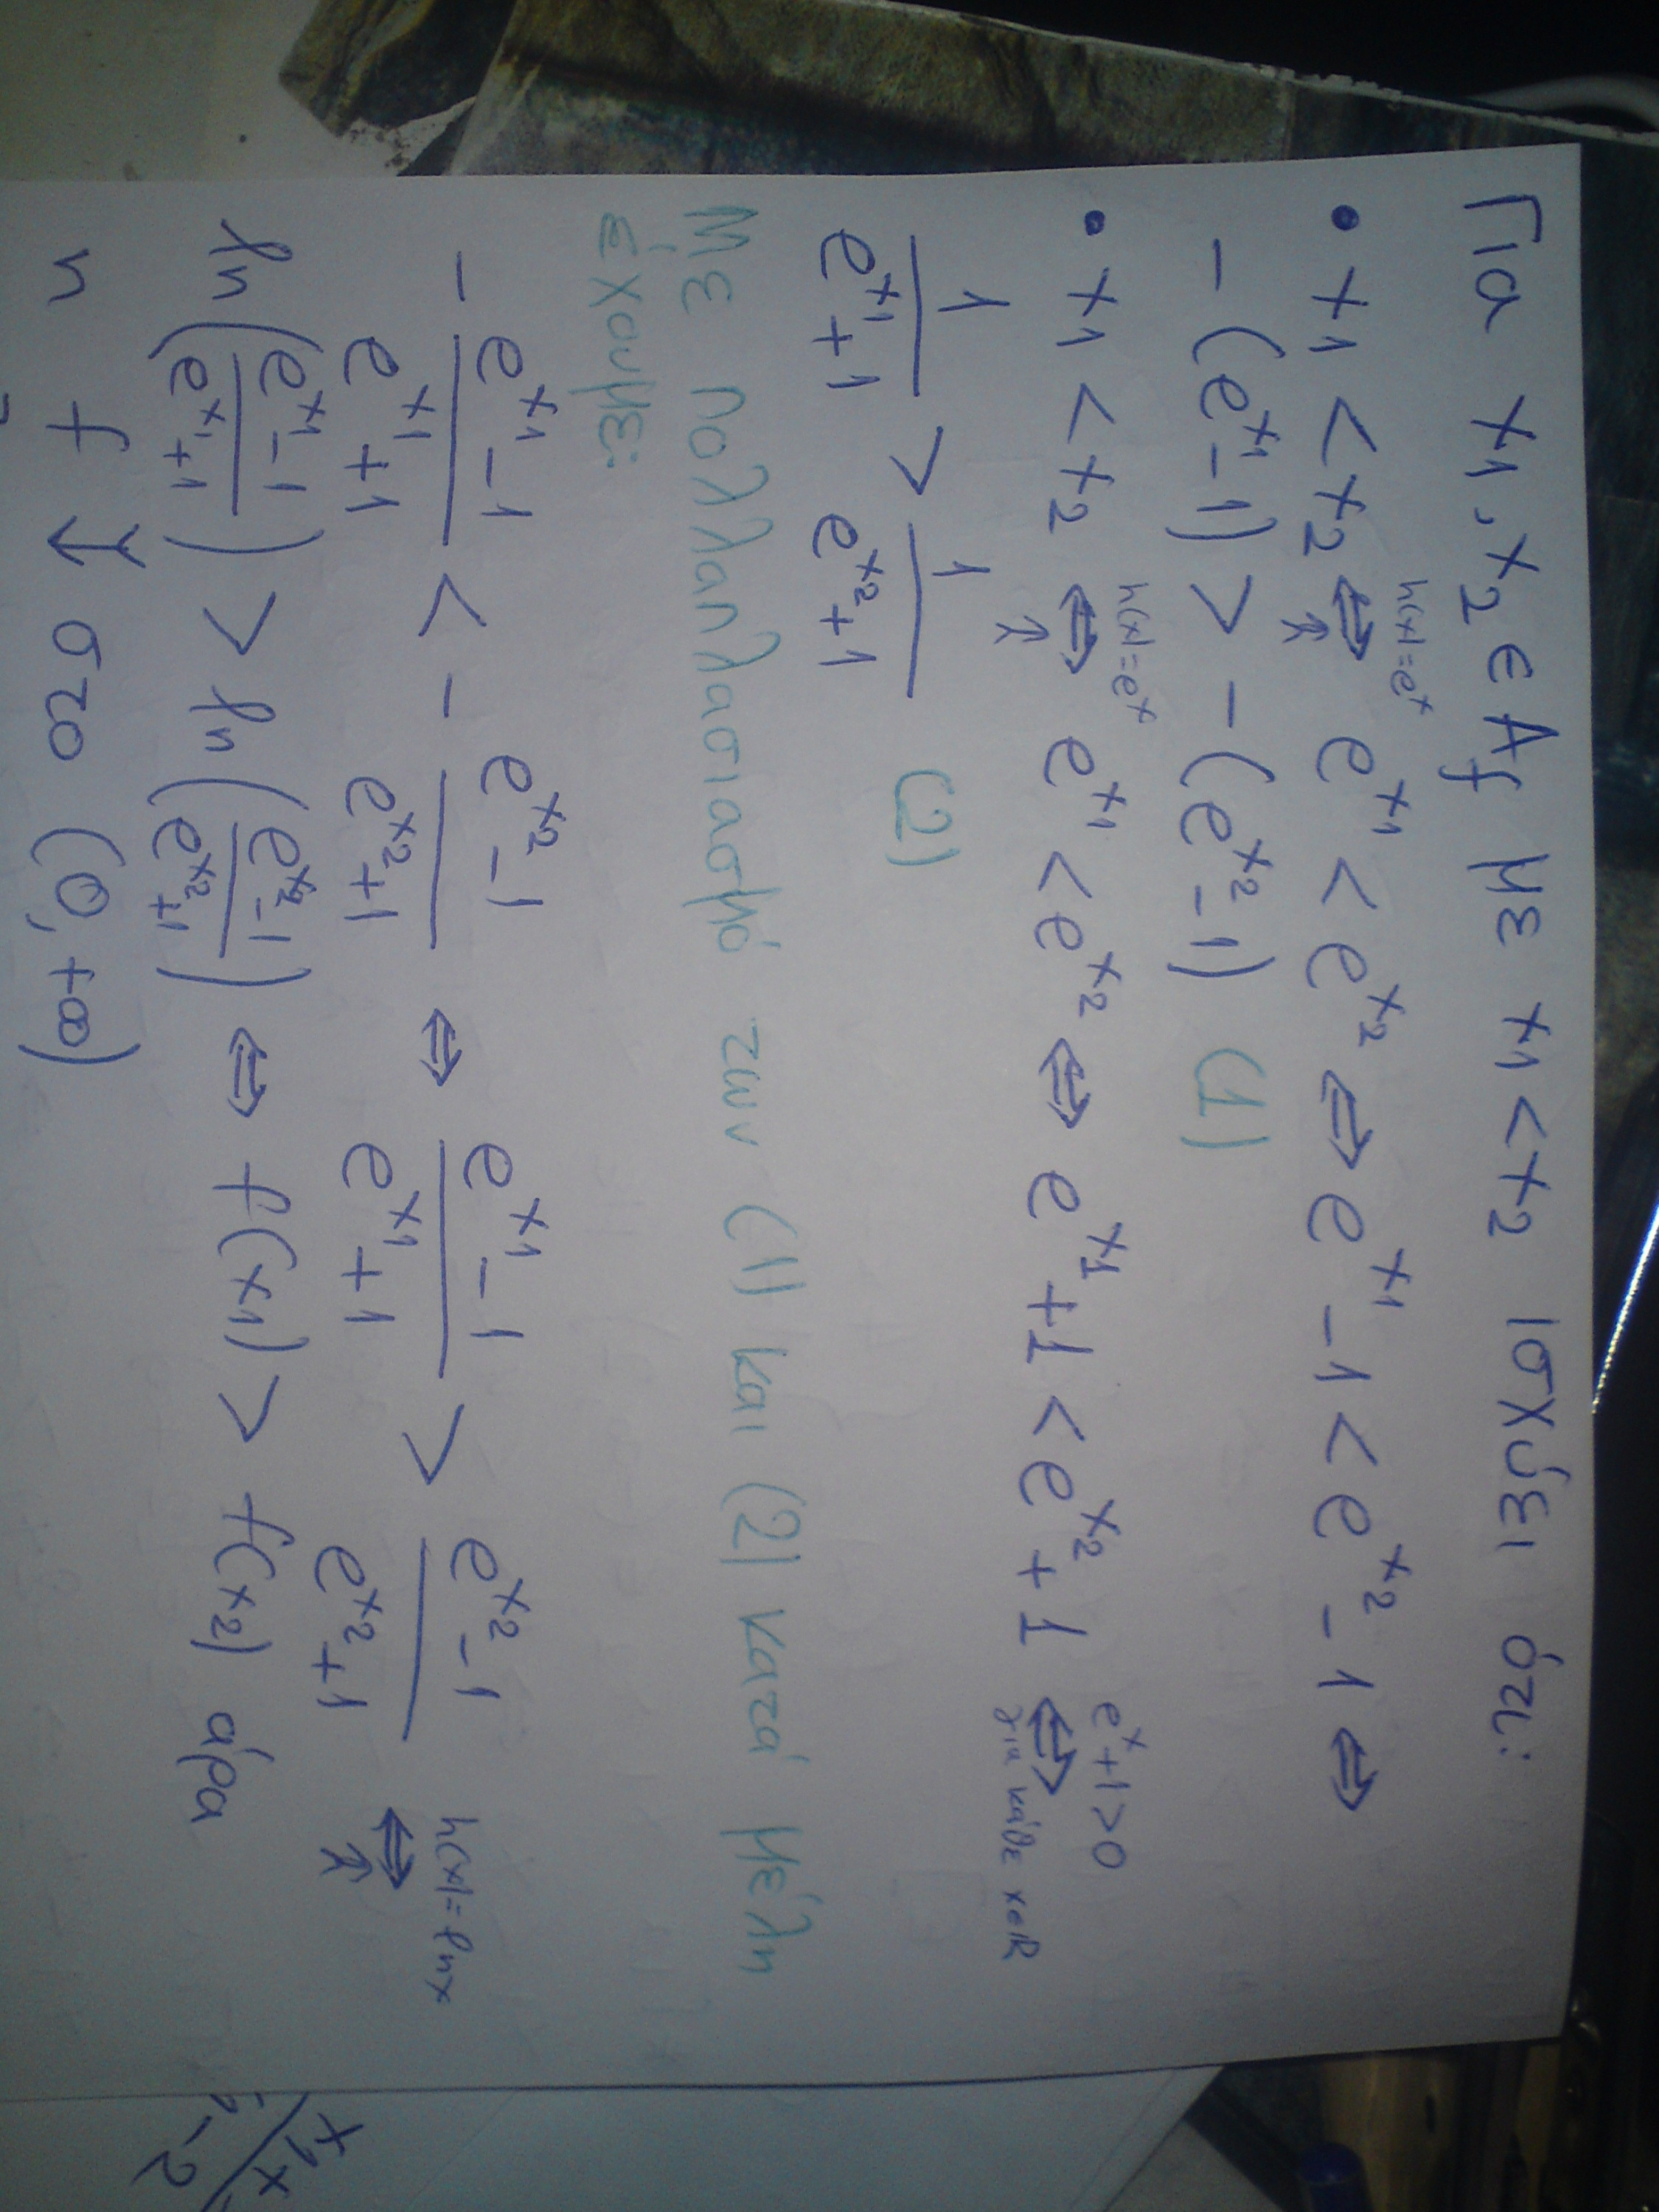 Για x₁, x₂ ∈ A_f με x₁ < x₂ ισχύει ότι:
• x₁ < x₂ ⇔ (h(x) = eˣ ↑) e^{x₁} < e^{x₂} ⇔ e^{x₁} - 1 < e^{x₂} - 1 ⇔
-(e^{x₁} - 1) > -(e^{x₂} - 1) (1)
• x₁ < x₂ ⇔ (h(x) = eˣ ↑) e^{x₁} < e^{x₂} ⇔ e^{x₁} + 1 < e^{x₂} + 1 ⇔ (eˣ + 1 > 0 για κάθε x∈ℝ)
1/(e^{x₁} + 1) > 1/(e^{x₂} + 1) (2)
Με πολλαπλασιασμό των (1) και (2) κατά μέλη
έχουμε:
- (e^{x₁} - 1)/(e^{x₁} + 1) < - (e^{x₂} - 1)/(e^{x₂} + 1) ⇔ (e^{x₁} - 1)/(e^{x₁} + 1) > (e^{x₂} - 1)/(e^{x₂} + 1) ⇔ (h(x) = lnx ↑)
ln((e^{x₁} - 1)/(e^{x₁} + 1)) > ln((e^{x₂} - 1)/(e^{x₂} + 1)) ⇔ f(x₁) > f(x₂) άρα
η f ↓ στο (0, +∞)